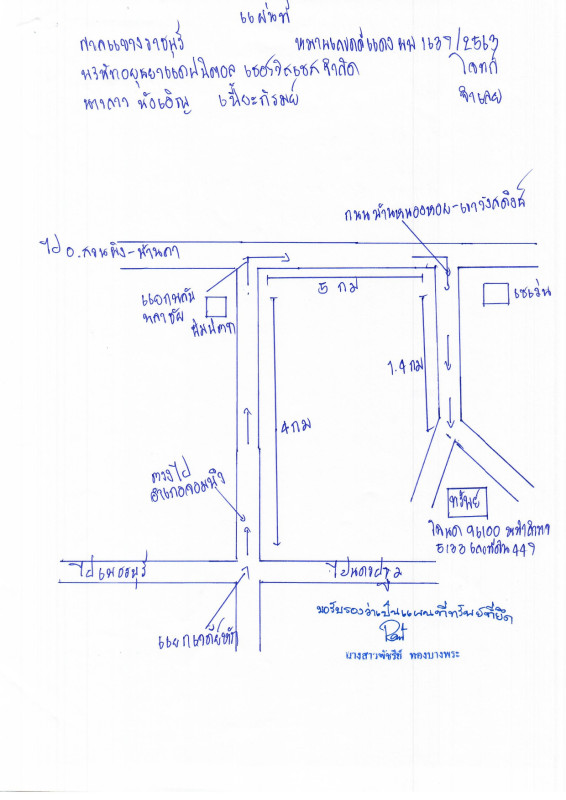 แผนที่
ศาลแขวงราชบุรี หมายเลขคดีแดง ผบ 1639/2563
บริษัทอยุธยาแคปปิตอล เซอร์วิสเซส จำกัด โจทก์
นางสาว จำเลย
ถนนบ้านหนองหอย-เขาวังสดึงษ์
ไป อ.สวนผึ้ง-บ้านคา
5 กม
แยกนคินทลาชัย
ปั๊มปตท
เซเว่น
1.4 กม
4 กม
ตรงไป
อำเภอจอมบึง
ทรัพย์
โฉนด 96100 หน้าสำรวจ
5133 เลขที่ดิน 449
ไปเพชรบุรี
ไปนครปฐม
แยกเจดีย์หัก
ขอรับรองว่าเป็นแผนที่ทรัพย์ที่ยึด
นางสาวพัชรีย์ ทองบางพระ